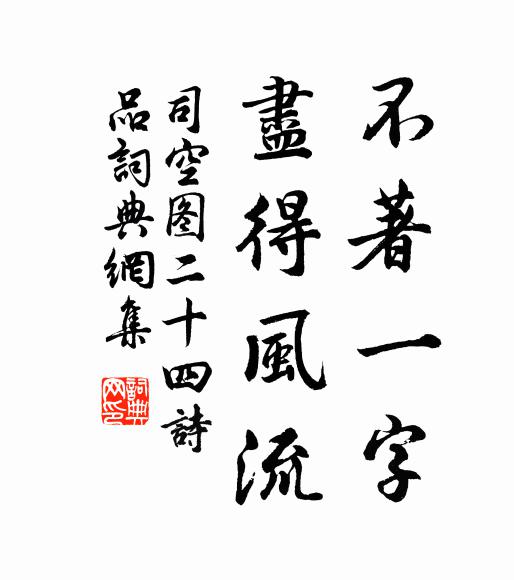 不著一字
盡得風流
司空图二十四詩
品詞典網集
詞典网印